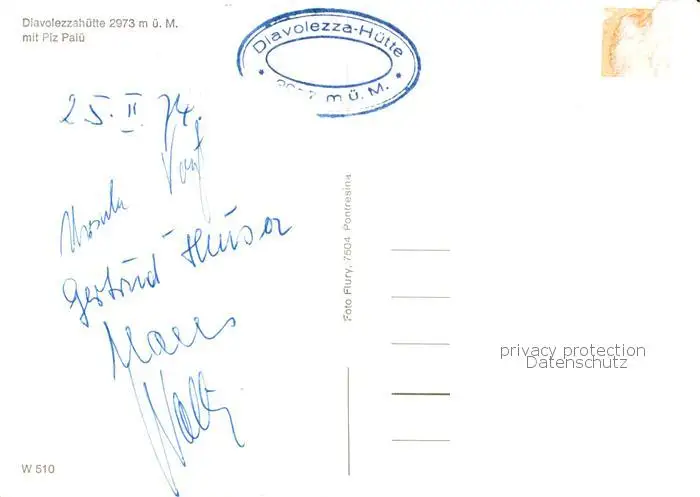 Diavolezzahütte 2973 m ü. M.
mit Piz Palü
Diavolezza-Hütte
m ü. M.
25. II. 74.
Ursula
Gertrud Huser
Foto Flury, 7504 Pontresina
privacy protection
Datenschutz
W 510